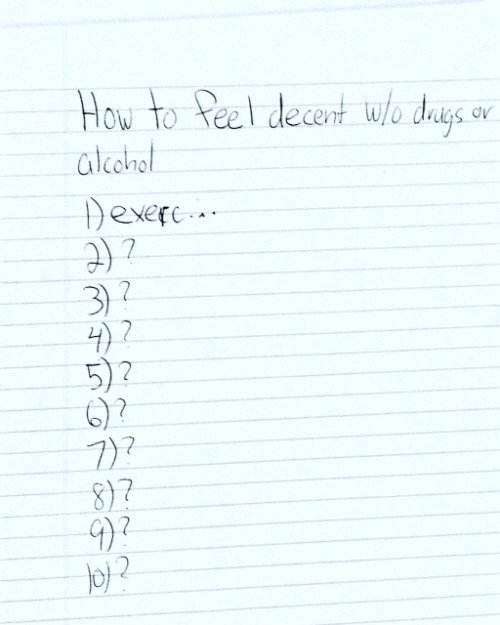 How to feel decent w/o drugs or
alcohol
1) exerc...
2) ?
3) ?
4) ?
5) ?
6) ?
7) ?
8) ?
9) ?
10) ?